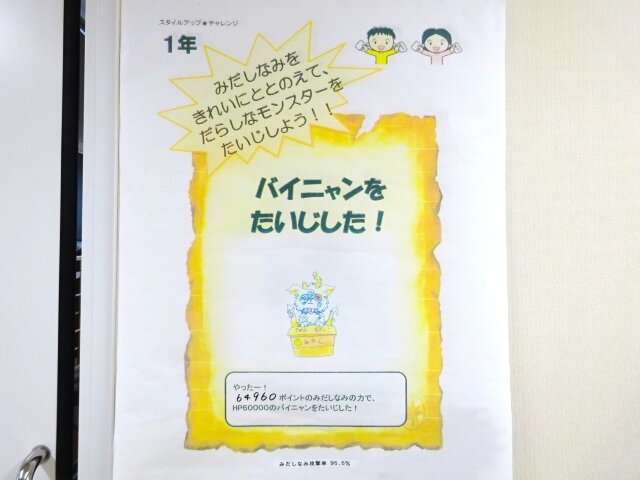 スタイルアップ★チャレンジ
1年
みだしなみを
きれいにととのえて、
だらしなモンスターを
たいじしよう！！
バイニャンを
たいじした！
みかん
やったー！
64960ポイントのみだしなみの力で、
HP60000のバイニャンをたいじした！
みだしなみ攻撃率 95.5%